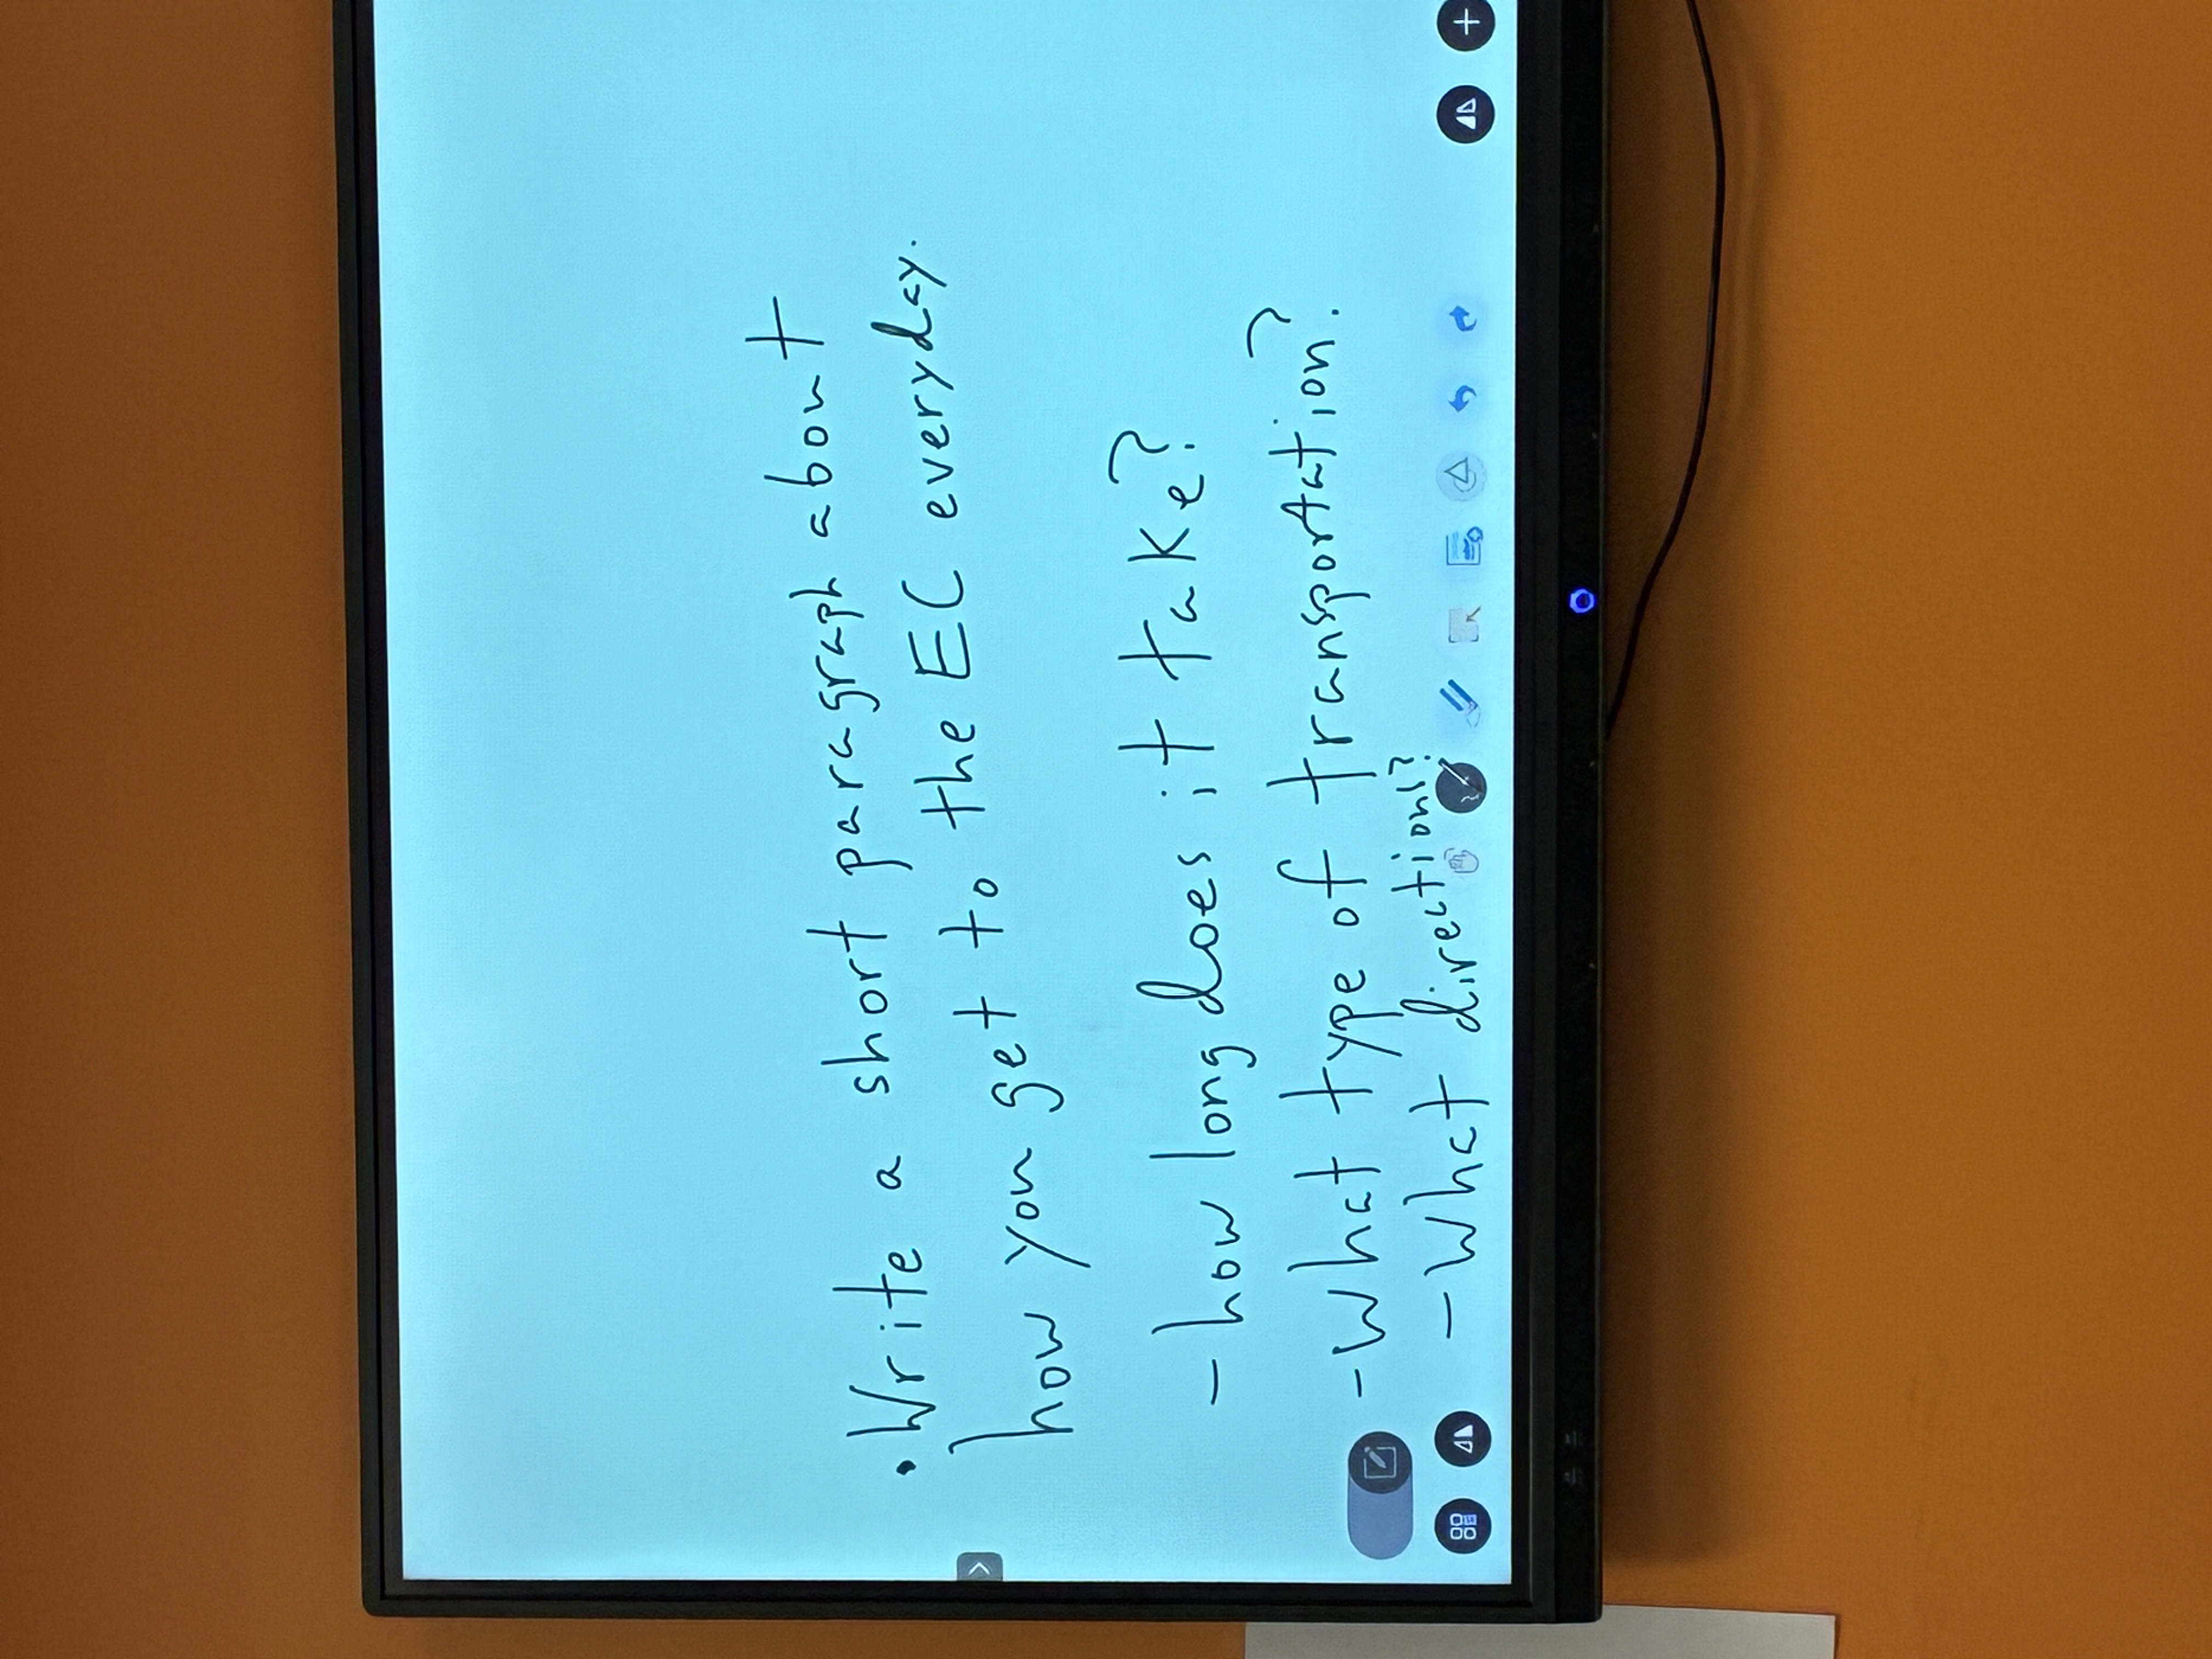 • Write a short paragraph about
how you get to the EC everyday.
- how long does it take?
- What type of transportation?
- What directions?